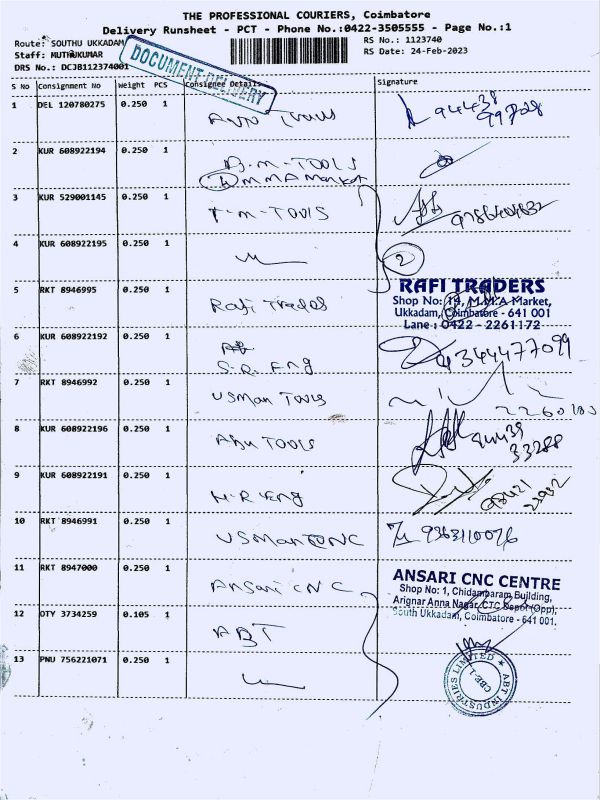 THE PROFESSIONAL COURIERS, Coimbatore
Delivery Runsheet - PCT - Phone No.:0422-3505555 - Page No.:1
Route: SOUTHU UKKADAM
RS No.: 1123740
Staff: MUTHUKUMAR
RS Date: 24-Feb-2023
DRS No.: DCJB112374001
DOCUMENT DELIVERY
S No Consignment No Weight PCS Consignee Details Signature
1 DEL 120780275 0.250 1 Tools 94438
2 KUR 608922194 0.250 1 A.M-TOOLS
MMA Market
3 KUR 529001145 0.250 1 T-M-TOOLS
4 KUR 608922195 0.250 1 2
5 RKT 8946995 0.250 1 Rafi Trades
RAFI TRADERS
Shop No: 14, M.M.A Market,
Ukkadam, Coimbatore - 641 001
Lane : 0422 - 2261172
6 KUR 608922192 0.250 1 S.R. Eng 9344477099
7 RKT 8946992 0.250 1 USMan Tools
8 KUR 608922196 0.250 1 ABU TOOLS
33288
9 KUR 608922191 0.250 1 H-R Eng
10 RKT 8946991 0.250 1 USMan CNC 9363110076
11 RKT 8947000 0.250 1 Ansari CNC
ANSARI CNC CENTRE
Shop No: 1, Chidambaram Building,
Arignar Anna Nagar, CTC Depot (Opp),
South Ukkadam, Coimbatore - 641 001.
12 OTY 3734259 0.105 1 ABT
13 PNU 756221071 0.250 1
ABT INDUSTRIES LIMITED
CBE-1